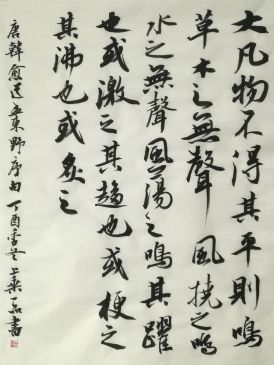 大凡物不得其平則鳴
草木之無聲風撓之鳴
水之無聲風蕩之鳴其躍
也或激之其趨也或梗之
其沸也或炙之
唐韓愈送孟東野序句丁酉季冬上桑一品書